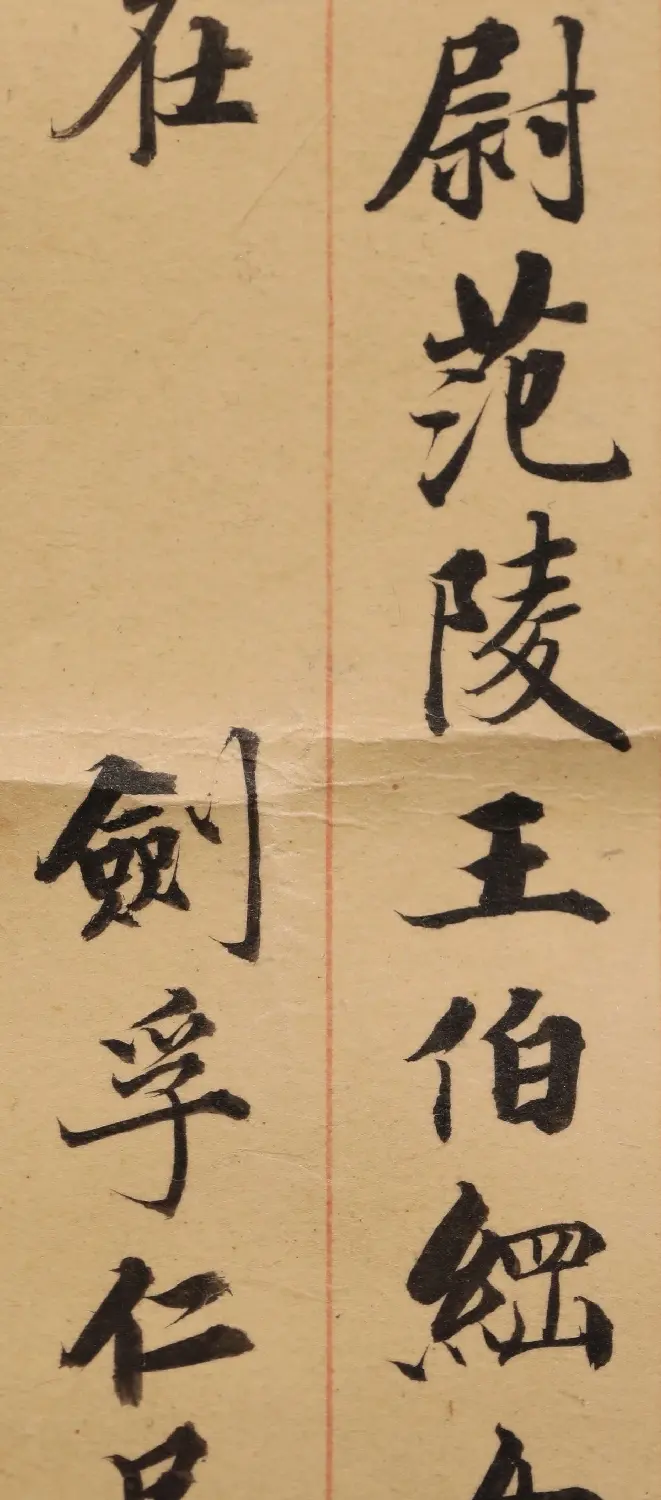 尉范陵王伯綱
在 劍孚仁